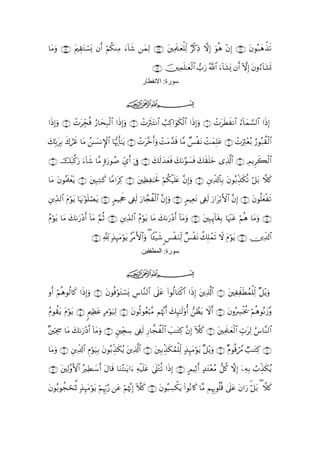 تَذْهَبُونَ ۝ إِنْ هُوَ إِلَّا ذِكْرٌ لِّلْعَٰلَمِينَ ۝ لِمَن شَآءَ مِنكُمْ أَن يَسْتَقِيمَ ۝ وَمَا
تَشَآءُونَ إِلَّآ أَن يَشَآءَ ٱللَّهُ رَبُّ ٱلْعَٰلَمِينَ ۝
سورة: الانفطار
بِسْمِ ٱللَّهِ ٱلرَّحْمَٰنِ ٱلرَّحِيمِ
إِذَا ٱلسَّمَآءُ ٱنفَطَرَتْ ۝ وَإِذَا ٱلْكَوَاكِبُ ٱنتَثَرَتْ ۝ وَإِذَا ٱلْبِحَارُ فُجِّرَتْ ۝ وَإِذَا
ٱلْقُبُورُ بُعْثِرَتْ ۝ عَلِمَتْ نَفْسٌ مَّا قَدَّمَتْ وَأَخَّرَتْ ۝ يَٰٓأَيُّهَا ٱلْإِنسَٰنُ مَا غَرَّكَ بِرَبِّكَ
ٱلْكَرِيمِ ۝ ٱلَّذِى خَلَقَكَ فَسَوَّىٰكَ فَعَدَلَكَ ۝ فِىٓ أَىِّ صُورَةٍ مَّا شَآءَ رَكَّبَكَ ۝
كَلَّا بَلْ تُكَذِّبُونَ بِٱلدِّينِ ۝ وَإِنَّ عَلَيْكُمْ لَحَٰفِظِينَ ۝ كِرَامًا كَٰتِبِينَ ۝ يَعْلَمُونَ مَا
تَفْعَلُونَ ۝ إِنَّ ٱلْأَبْرَارَ لَفِى نَعِيمٍ ۝ وَإِنَّ ٱلْفُجَّارَ لَفِى جَحِيمٍ ۝ يَصْلَوْنَهَا يَوْمَ ٱلدِّينِ
۝ وَمَا هُمْ عَنْهَا بِغَآئِبِينَ ۝ وَمَآ أَدْرَىٰكَ مَا يَوْمُ ٱلدِّينِ ۝ ثُمَّ مَآ أَدْرَىٰكَ مَا يَوْمُ
ٱلدِّينِ ۝ يَوْمَ لَا تَمْلِكُ نَفْسٌ لِّنَفْسٍ شَيْـًٔا ۖ وَٱلْأَمْرُ يَوْمَئِذٍ لِّلَّهِ ۝
سورة: المطففين
بِسْمِ ٱللَّهِ ٱلرَّحْمَٰنِ ٱلرَّحِيمِ
وَيْلٌ لِّلْمُطَفِّفِينَ ۝ ٱلَّذِينَ إِذَا ٱكْتَالُوا۟ عَلَى ٱلنَّاسِ يَسْتَوْفُونَ ۝ وَإِذَا كَالُوهُمْ أَو
وَّزَنُوهُمْ يُخْسِرُونَ ۝ أَلَا يَظُنُّ أُو۟لَٰٓئِكَ أَنَّهُم مَّبْعُوثُونَ ۝ لِيَوْمٍ عَظِيمٍ ۝ يَوْمَ يَقُومُ
ٱلنَّاسُ لِرَبِّ ٱلْعَٰلَمِينَ ۝ كَلَّآ إِنَّ كِتَٰبَ ٱلْفُجَّارِ لَفِى سِجِّينٍ ۝ وَمَآ أَدْرَىٰكَ مَا سِجِّينٌ
۝ كِتَٰبٌ مَّرْقُومٌ ۝ وَيْلٌ يَوْمَئِذٍ لِّلْمُكَذِّبِينَ ۝ ٱلَّذِينَ يُكَذِّبُونَ بِيَوْمِ ٱلدِّينِ ۝ وَمَا
يُكَذِّبُ بِهِۦٓ إِلَّا كُلُّ مُعْتَدٍ أَثِيمٍ ۝ إِذَا تُتْلَىٰ عَلَيْهِ ءَايَٰتُنَا قَالَ أَسَٰطِيرُ ٱلْأَوَّلِينَ ۝
كَلَّا ۖ بَلْ ۜ رَانَ عَلَىٰ قُلُوبِهِم مَّا كَانُوا۟ يَكْسِبُونَ ۝ كَلَّآ إِنَّهُمْ عَن رَّبِّهِمْ يَوْمَئِذٍ لَّمَحْجُوبُونَ